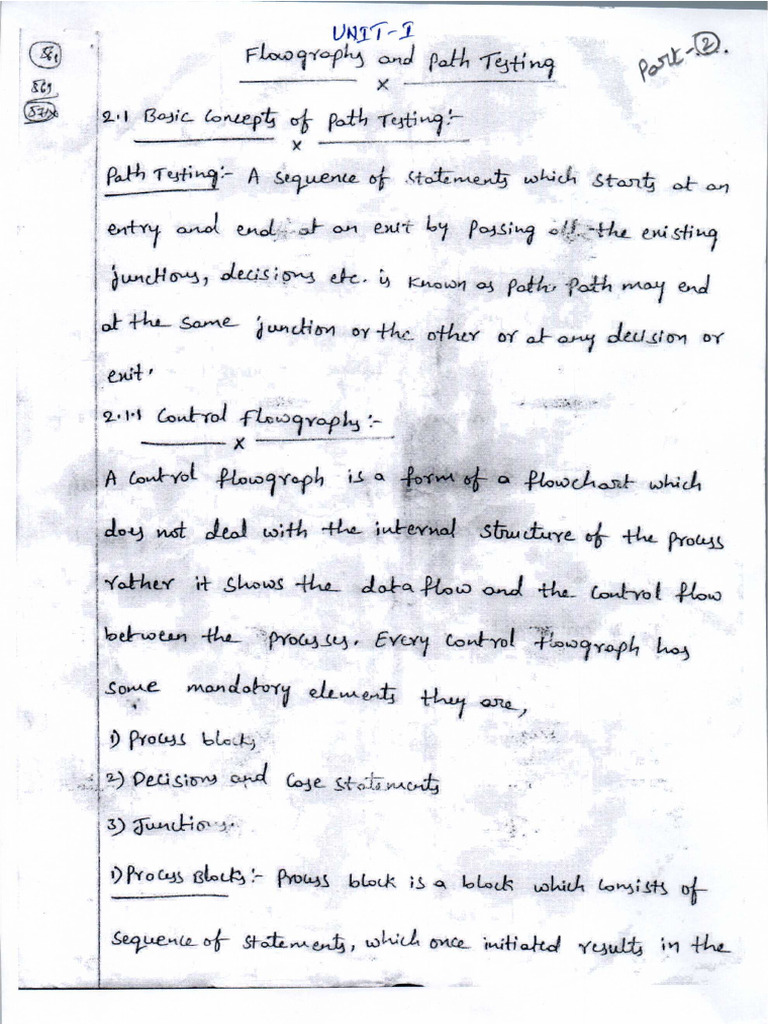 UNIT-I
Flowgraphs and Path Testing
Part-2.
561
569
x
2.1 Basic Concepts of Path Testing:-
x
Path Testing:- A sequence of statements which starts at an
entry and end at an exit by passing all the existing
junctions, decisions etc. is known as path. Path may end
at the same junction or the other or at any decision or
exit.
2.1.1 Control Flowgraphs:-
x
A control flowgraph is a form of a flowchart which
does not deal with the internal structure of the process
rather it shows the data flow and the control flow
between the processes. Every control flowgraph has
some mandatory elements they are,
1) Process blocks
2) Decisions and Case statements
3) Junctions.
1) Process Blocks:- Process block is a block which consists of
sequence of statements, which once initiated results in the